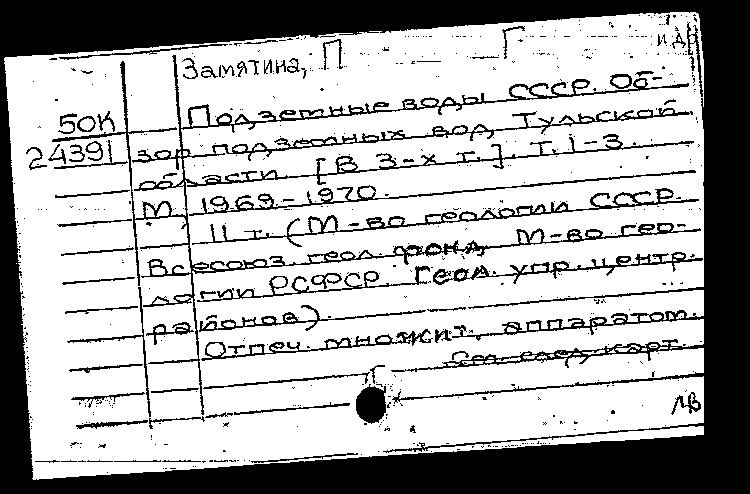 Замятина, П Г и др
50К
24391
Подземные воды СССР. Об-
зор подземных вод Тульской
области. [В 3-х т.]. Т. 1-3.
М, 1969-1970.
11 т. (М-во геологии СССР.
Всесоюз. геол. фонд, М-во гео-
логии РСФСР. Геол. упр. центр.
районов).
Отпеч. множит. аппаратом.
См. след. карт.